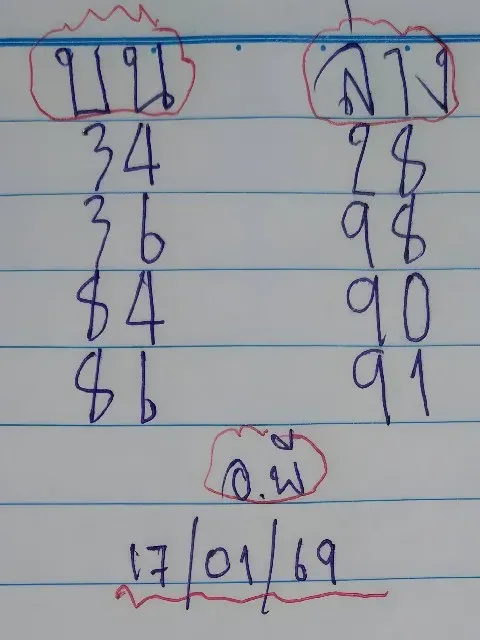 บน ล่าง
34 28
36 98
84 90
86 91
อ.พี
17/01/69